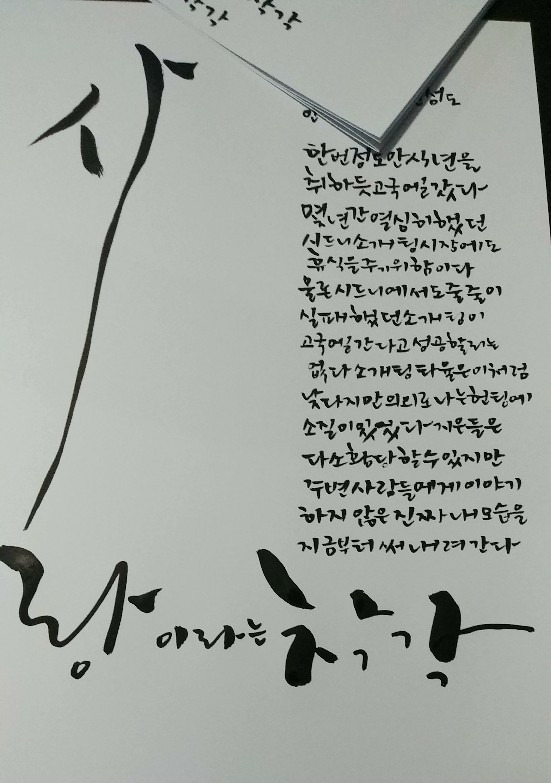 착각
한번정도안식년을
취하듯고국엘갔다
몇년간열심히했던
시드니소개팅시장에도
휴식을주기위함이다
물론시드니에서도줄줄이
실패했던소개팅이
고국엘간다고성공할리는
없다소개팅타율은이처럼
낮다지만의외로나는헌팅에
소질이있었다지인들은
다소황당할수있지만
주변사람들에게이야기
하지않은진짜내모습을
지금부터써내려간다
사
랑이라는착각